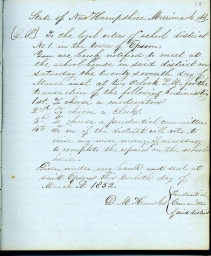 State of New Hampshire Merrimack SS
To the legal voters of school district
No 1. in the town of Epsom
You are hereby notified to meet at
the school house in said district on
saturday the twenty seventh day of
March inst. at two Oclock P.M.
to act on the following business
1st To choose a moderator
2nd To choose a Clerk
3d To choose a prudential committee
4th To see if the district will vote to
raise any more money if necessary
to complete the repairs on the school
house
Given under my hand and seal at
said Epsom this twelfth day of
March A.D. 1852.
Prudential
Committee
of said district